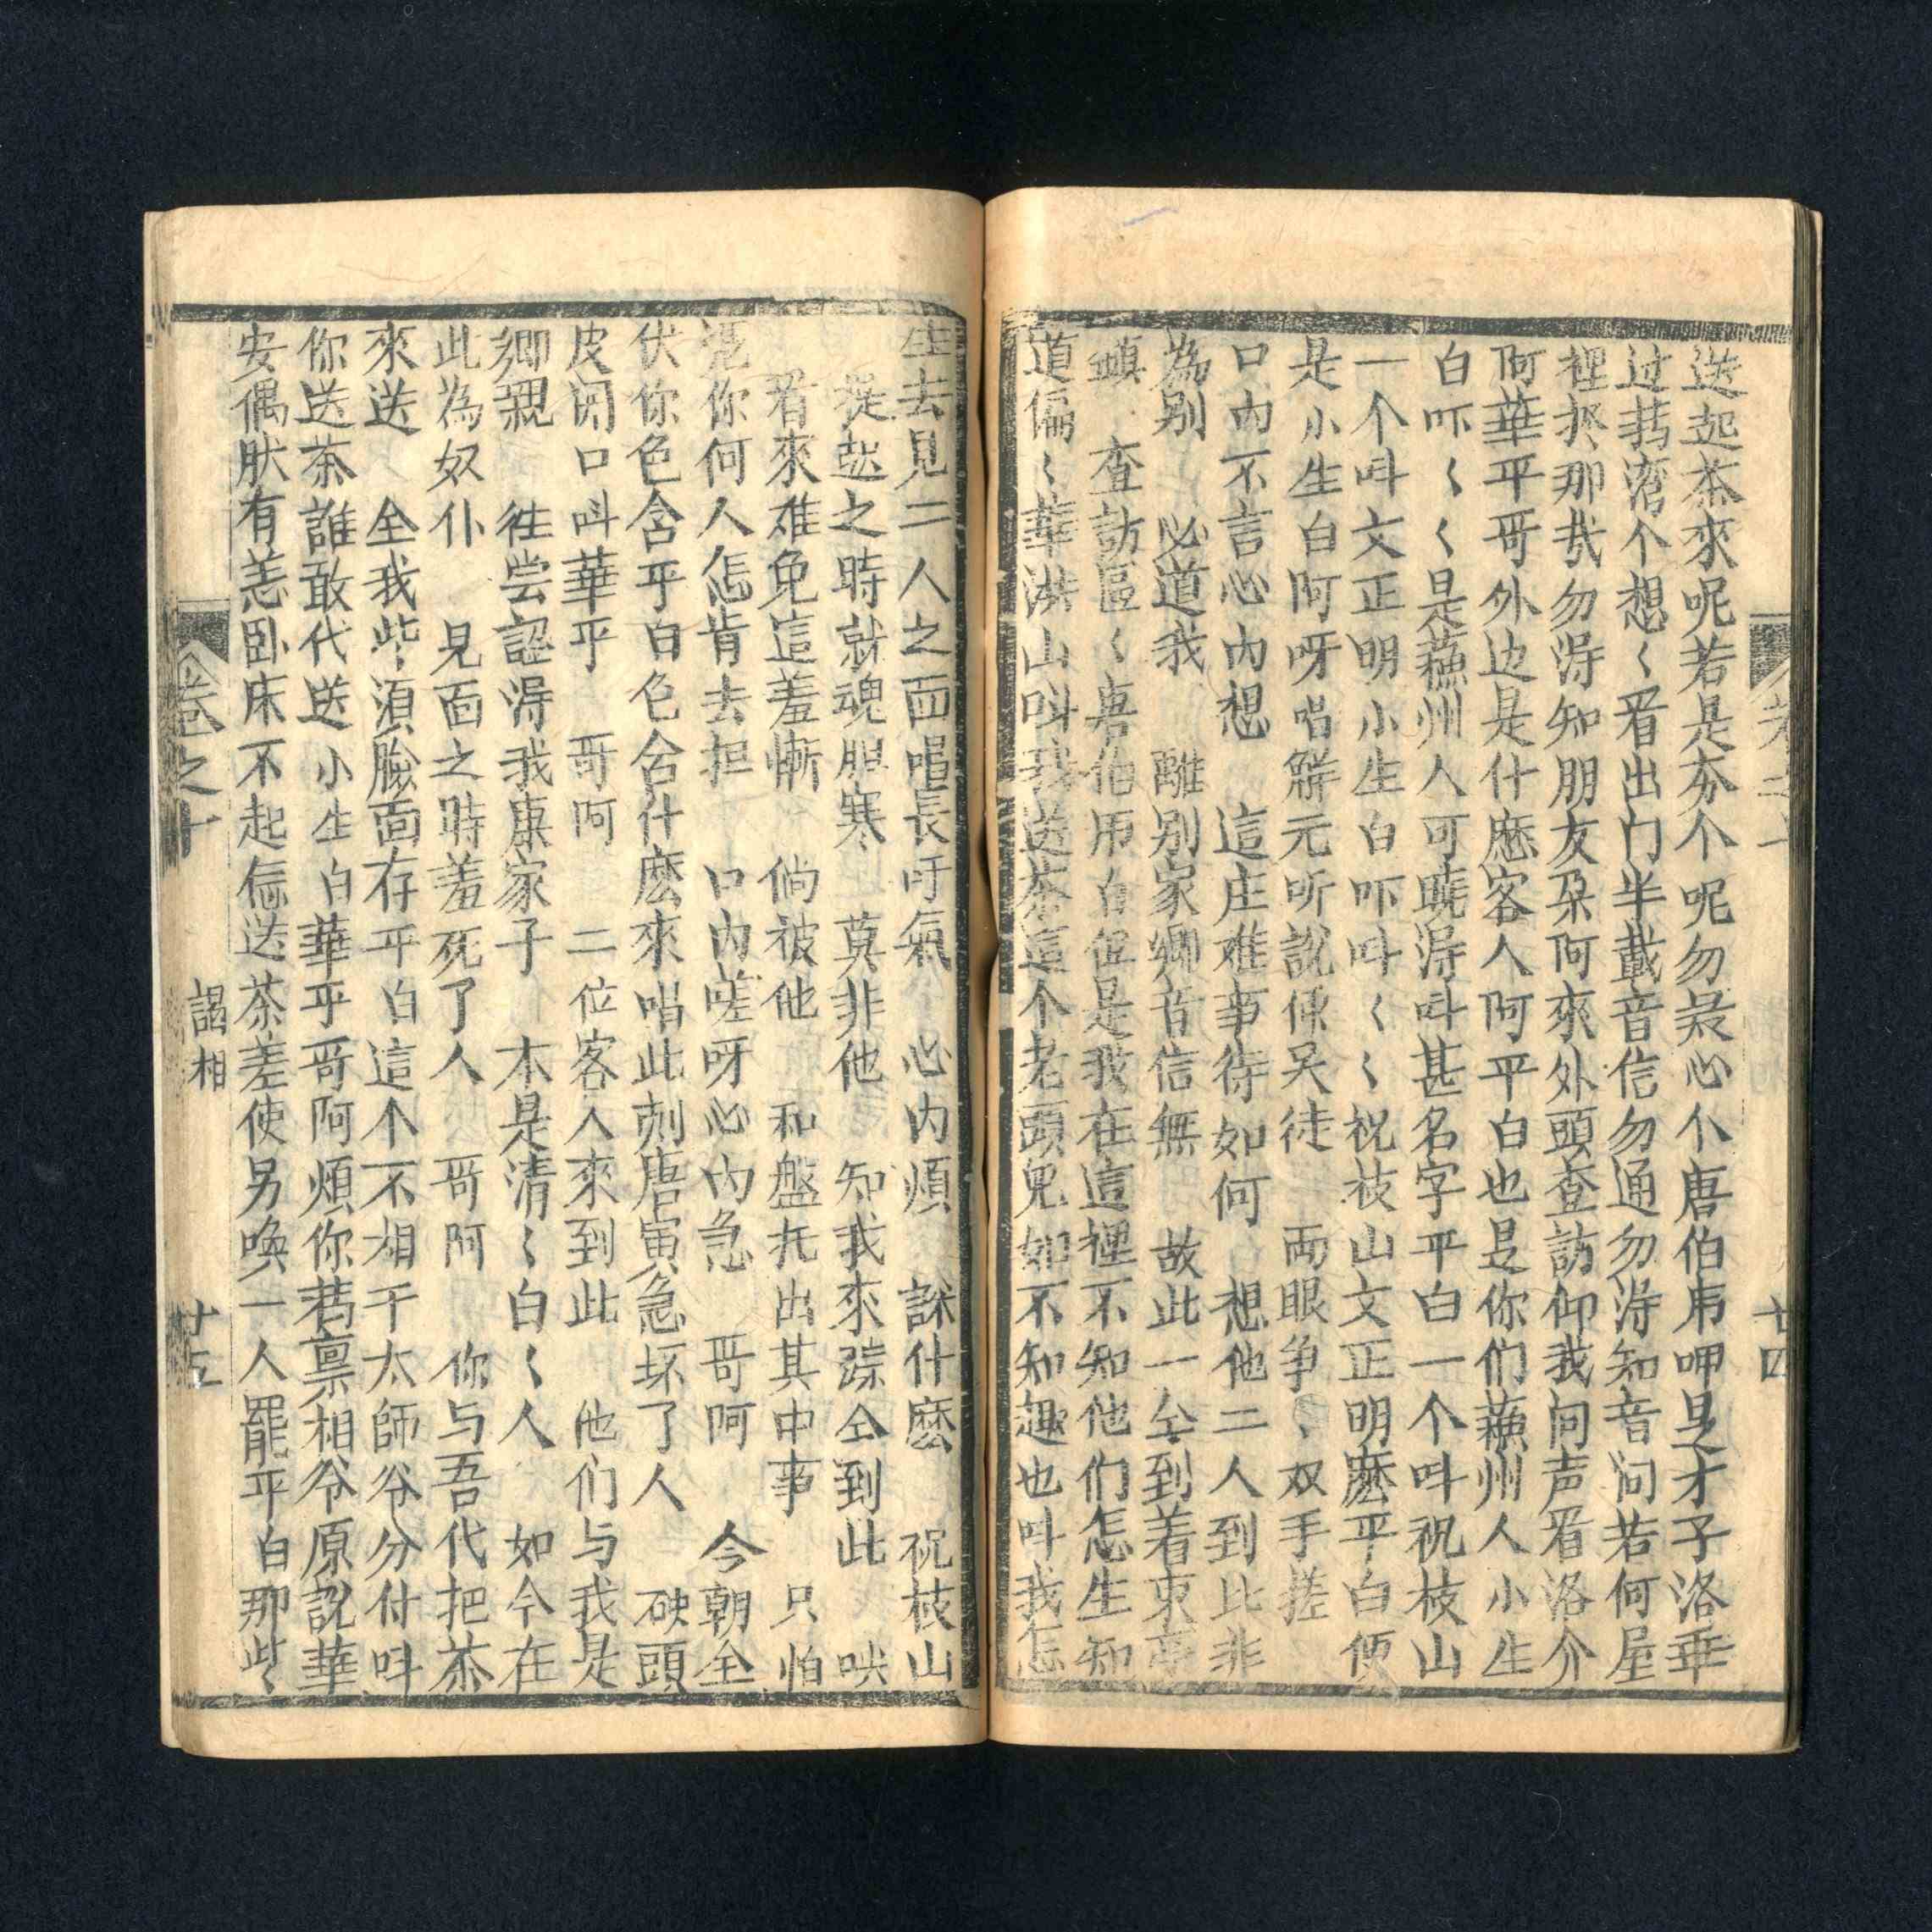 送起茶來呢若是夯个呢勿裰心个唐伯甪呷是才子洛乖
过搿湾个想〻看出门半載音信勿通勿淂知音问若何屋
裡於那哉勿淂知朋友朶阿來外頭查訪仰我问声看洛介
阿華平哥外边是什麽客人阿平白也是你们蘓州人小生
白吓〻〻是蘓州人可曉淂呌甚名字平白一个呌祝枝山
一个呌文正明小生白吓呌〻〻祝枝山文正明麽平白便
是小生白阿呀唱觧元听説倸吴徒 両眼争〻双手搓
口内不言心内想 這庄难事待如何 想他二人到比非
為别 必道我 離别家卿音信無 故此一仝到着東亭
鎮 查訪區〻唐伯甪白但是我在這裡不知他们怎生知
道偏〻華洪山呌我送茶這个老頭兒如不知趣也呌我怎
生去見二人之面唱長吁氣 心内煩 訸什麽 祝枝山
提起之時就魂胆寒 莫非他 知我來踪仝到此 唊
看來难免這羞慚 倘被他 和盤托出其中事 只怕
凴你何人怎肯去担 口内嗟呀心内急 哥阿 今朝仝
伏你色舍乎白色舍什麽來唱此刻唐寅急坏了人 硬頭
皮闭口呌華平 哥阿 二位客人來到此 他们与我是
卿親 徃尝認淂我康家子 本是清〻白〻人 如今在
此為奴仆 見面之時羞死了人 哥阿 你与吾代把茶
來送 全我些湏臉面存平白這个不相干太師爷分付呌
你送茶誰敢代送小生白華乎哥阿煩你搿禀相爷原説華
安偶肰有恙卧床不起怎送茶差使另喚一人罷平白那些
卷之十 謁相 廿五
廿四